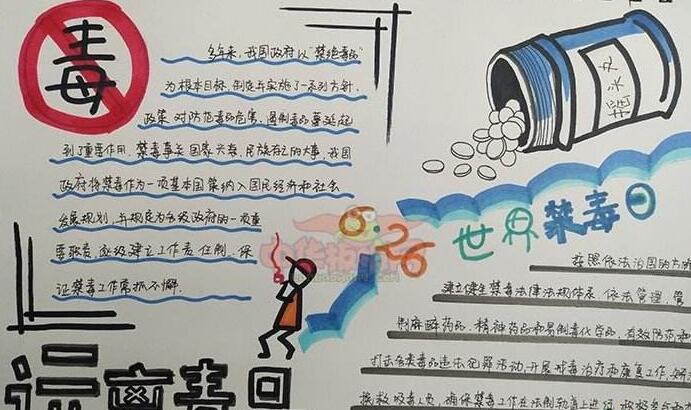 毒
多年来,我国政府以“禁绝毒品”
为根本目标,制定并实施了一系列方针、
政策,对防范毒品危害、遏制毒品蔓延起
到了重要作用。禁毒事关国家兴衰、民族存亡的大事,我国
政府将禁毒作为一项基本国策纳入国民经济和社会
发展规划,并规定为各级政府的一项重
要职责,逐级建立工作责任制,保
证禁毒工作常抓不懈.
摇头丸
6.26 世界禁毒日
按照依法治国的方
建立健全禁毒法律法规体系 依法管理、管
制麻醉药品、精神药品和易制毒化学品,有效防范和
打击各类毒品违法犯罪活动,开展戒毒治疗和康复工作,
挽救吸毒人员,确保禁毒工作在法制轨道上进行
远离毒品